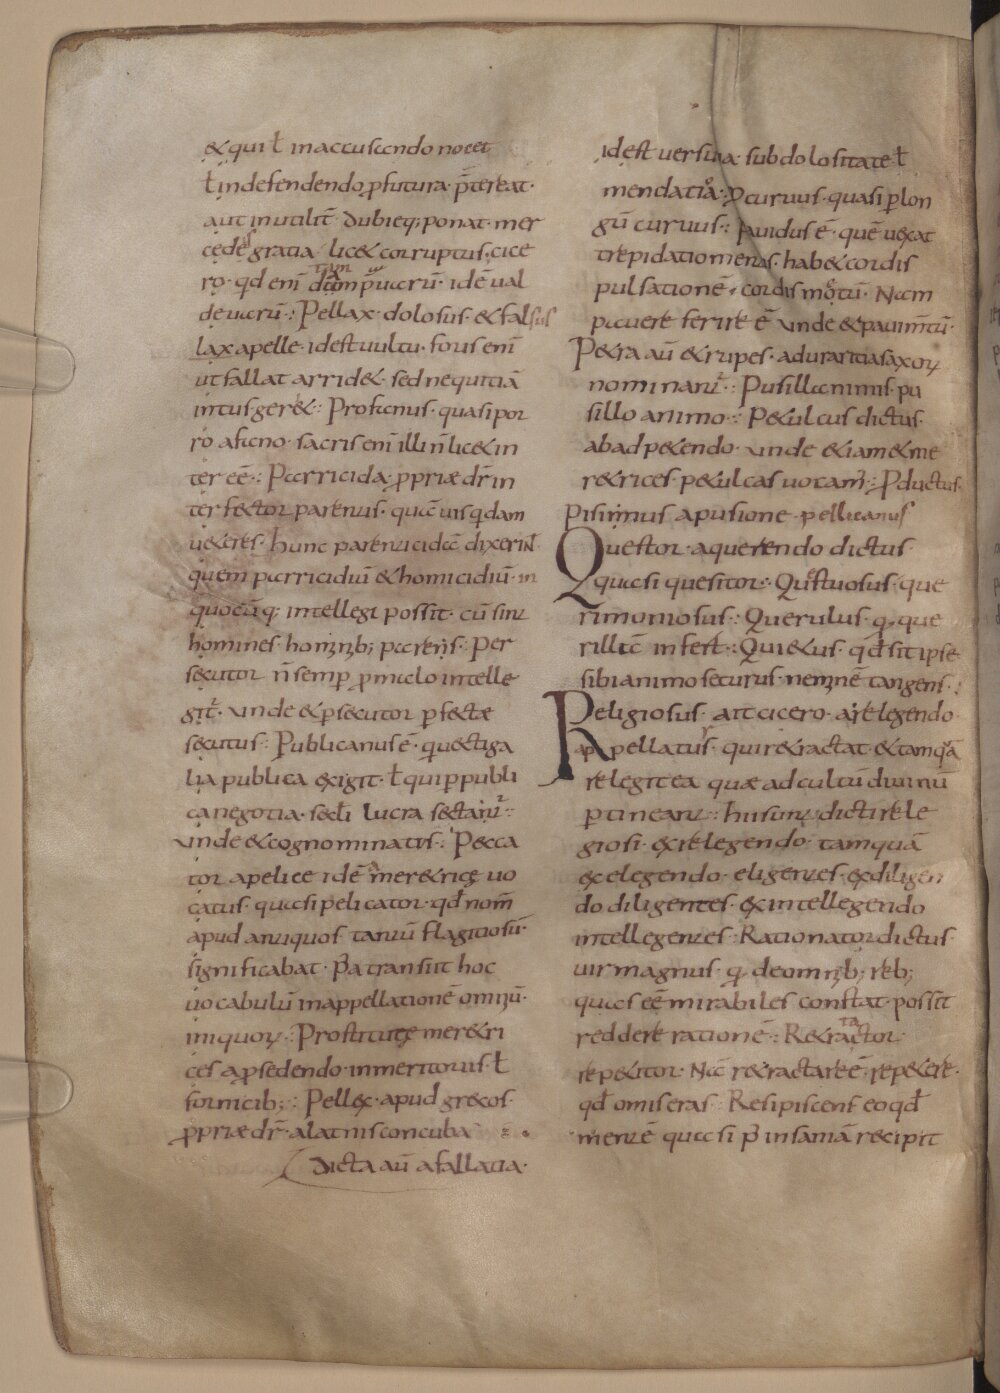 & qui ł in accusando noceat
ł in defendendo ꝓfutura p̄tereat·
aut inutilit̄· dubieq; ponat· mer
cedẽ gratia lic& corruptus· cice
ro· qd enī dum puarū· idē ual
de uarū·: Pellax· dolosus· & falsus
lax apelle· id est uultu· foris enī
ut fallat arrid&· sed nequitiā
intus ger&·: Profanus· quasi por
ro a fano· sacris enī illi n̄ lic& in
ter eē·: Parricida· ꝓpriæ dr̄ in
terfector parentis· quāuis qdam
u&eres· hunc parenticidā dixerint̄·
quem parricidiū & homicidiū· in
quocūq; intellegi possit· cū sint
homines hominib; parens·: Per
secutor n̄ semp̄ ꝓ malo intelle
git̄· unde & ꝑsecutor ꝑfectæ
secutus·: Publicanus ē· qui uectiga
lia publica exigit· ł qui ꝑ publi
ca negotia· sęcli lucra sectant̄·:
unde & cognominatus·: Pecca
tor a pelice idē a mer&rice uo
catus· quasi pelicator· qd̄ nom̄
apud antiquos tantū flagitiosū·
significabat· Pꝰea transiit hoc
uocabulū in appellationē omniū·
iniquoꝝ·: Prostitutę mer&ri
ces a ꝓsedendo· in meritoriis· ł
fornicib;·: Pellex· apud grecos·
ꝓpriæ dr̄· a latinis concuba
Dicta aū a fallatia·
id est uersuta subdolositate ł
mendatia· Procuruus· quasi ꝑ lon
gū curuus·: Pauidus ē· quē uexat
trepidatio mentis· hab& cordis
pulsationē· cordis motū· Nam
pauere ferire ē unde & pauimt̄ū·
P&ra aū & rupes· a duraritia saxoꝝ
nominant̄·: Pusillanimis· pu
sillo animo·: P&ulcus dictus
ab adp&endo· unde & iam & me
r&rices· p&ulcas uocam̄·: Productus·
Pisinnus a pusione· pellicanus
Questor· a querendo dictus·
quasi quesitor·: Questuosus· que
rimoniosus·: Querulus· q· que
rillā infert·: Qui&us· qd̄ sit ipse
sibi animo securus· neminē tangens·:
Religiosus· ait cicero· a relegendo·
appellatus· qui r&ractat & tamquā
relegit ea quæ ad cultū diuinū
ꝑtineant·: hii sunt dicti rele
giosi· ex relegendo· tamquā
ex elegendo· eligentes· ex diligen
do diligentes· ex intellegendo
intellegentes·: Rationator dictus·
uir magnus· q· de omnib; reb;
quas eē mirabiles constat· possit
reddere rationē·: R&ractator
rep&itor· Nā r&ractare ē· rep&ere·
qd̄ omiseras·: Resipiscens eo qd̄
mentē quasi pꝰ insaniā recipit